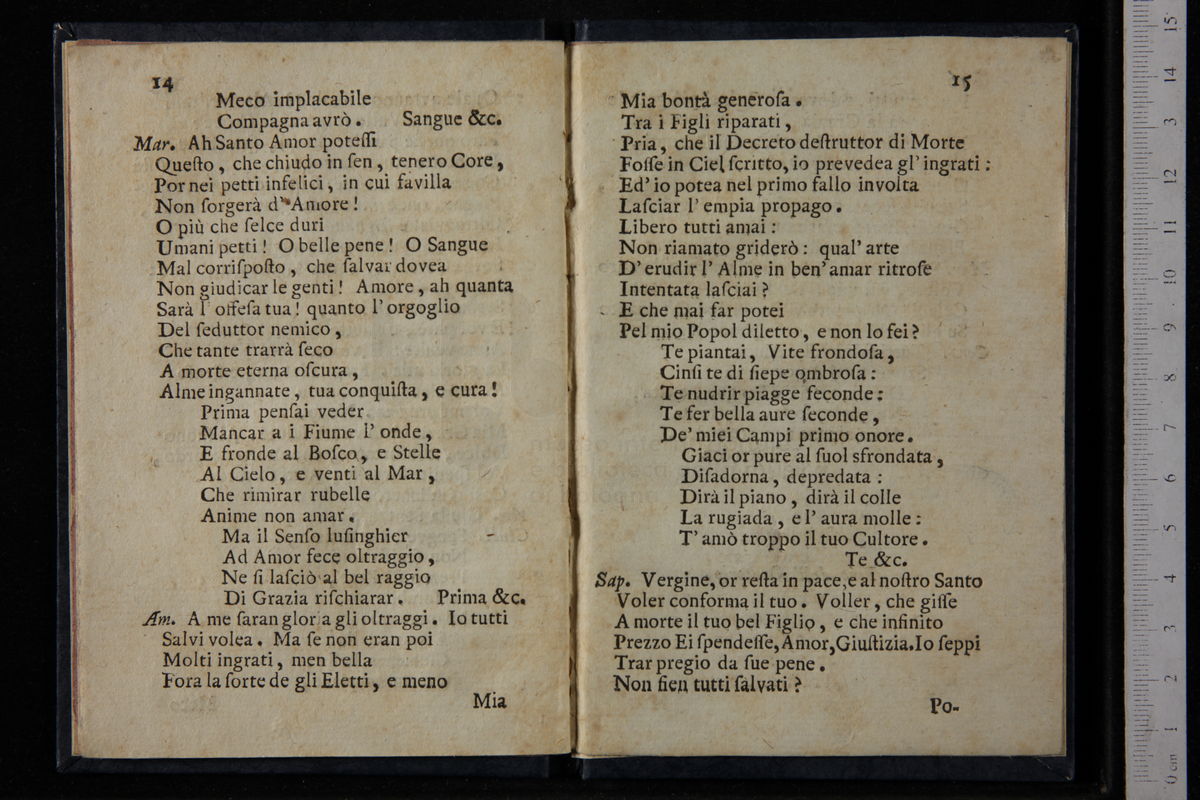 14
Meco implacabile
Compagna avrò. Sangue &c.
Mar. Ah Santo Amor poteſſi
Queſto, che chiudo in ſen, tenero Core,
Por nei petti infelici, in cui favilla
Non ſorgerà d' Amore!
O più che ſelce duri
Umani petti! O belle pene! O Sangue
Mal corriſpoſto, che ſalvar dovea
Non giudicar le genti! Amore, ah quanta
Sarà l' offeſa tua! quanto l' orgoglio
Del ſeduttor nemico,
Che tante trarrà ſeco
A morte eterna oſcura,
Alme ingannate, tua conquiſta, e cura!
Prima penſai veder
Mancar a i Fiume l' onde,
E fronde al Boſco, e Stelle
Al Cielo, e venti al Mar,
Che rimirar rubelle
Anime non amar.
Ma il Senſo luſinghier
Ad Amor fece oltraggio,
Ne ſi laſciò al bel raggio
Di Grazia riſchiarar. Prima &c.
Am. A me ſaran gloria gli oltraggi. Io tutti
Salvi volea. Ma ſe non eran poi
Molti ingrati, men bella
Fora la ſorte de gli Eletti, e meno
Mia
15
Mia bontà generoſa.
Tra i Figli riparati,
Pria, che il Decreto deſtruttor di Morte
Foſſe in Ciel ſcritto, io prevedea gl' ingrati:
Ed' io potea nel primo fallo involta
Laſciar l' empia propago.
Libero tutti amai:
Non riamato griderò: qual' arte
D' erudir l' Alme in ben' amar ritroſe
Intentata laſciai?
E che mai far potei
Pel mio Popol diletto, e non lo fei?
Te piantai, Vite frondoſa,
Cinſi te di ſiepe ombroſa:
Te nudrir piagge feconde:
Te fer bella aure ſeconde,
De' miei Campi primo onore.
Giaci or pure al ſuol sfrondata,
Diſadorna, depredata:
Dirà il piano, dirà il colle
La rugiada, e l' aura molle:
T' amò troppo il tuo Cultore.
Te &c.
Sap. Vergine, or reſta in pace, e al noſtro Santo
Voler conforma il tuo. Voller, che giſſe
A morte il tuo bel Figlio, e che infinito
Prezzo Ei ſpendeſſe, Amor, Giuſtizia. Io ſeppi
Trar pregio da ſue pene.
Non ſien tutti ſalvati?
Po-
0 cm 1 2 3 4 5 6 7 8 9 10 11 12 3 14 15